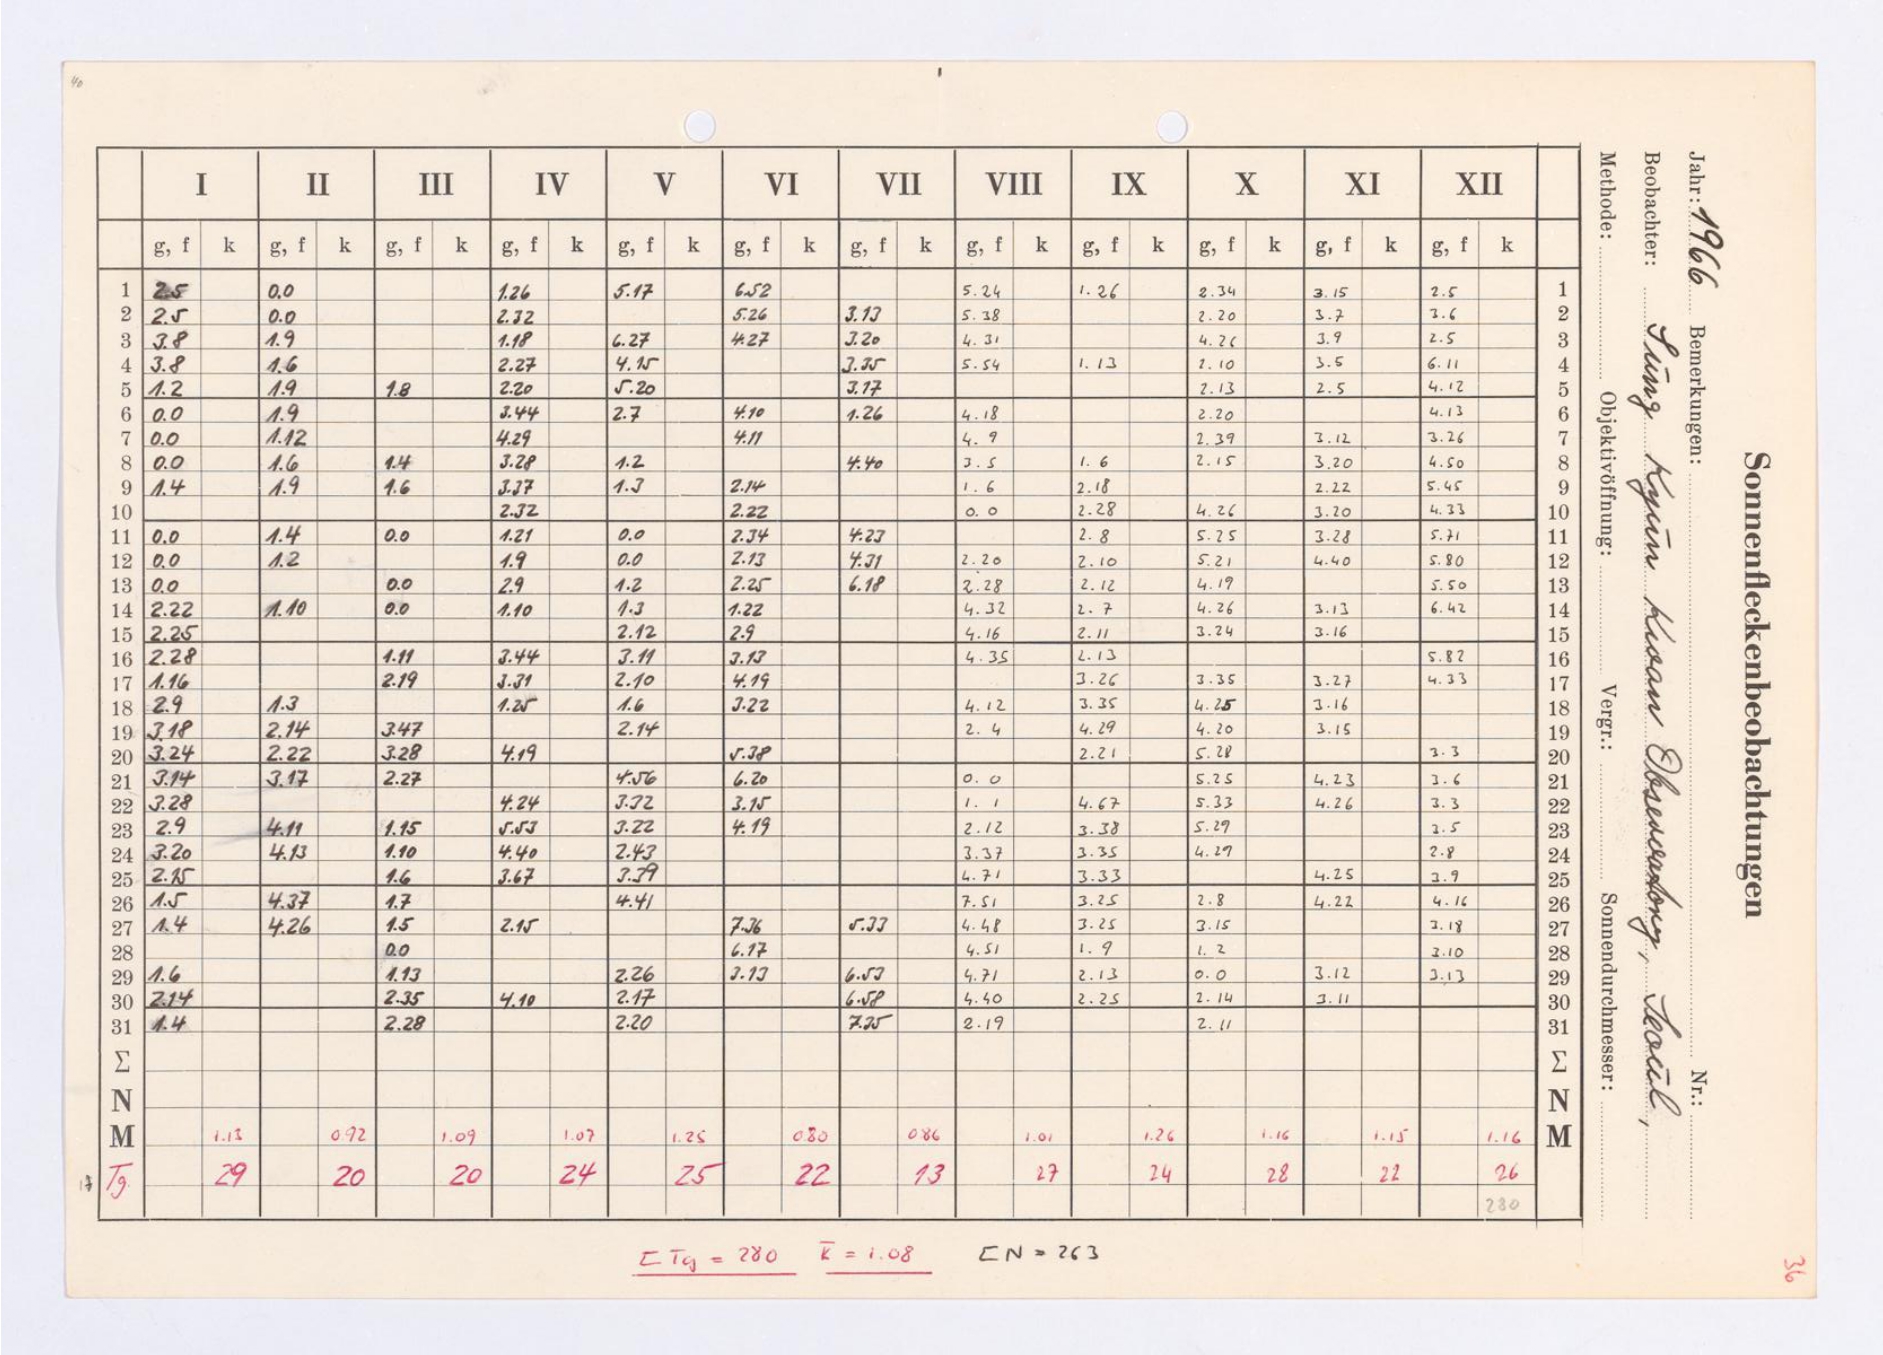 40
Sonnenfleckenbeobachtungen
Jahr: 1966 Bemerkungen: Nr.:
Beobachter: Sung Kyün Kwan Seoul,
Methode: Objektivöffnung: Vergr.: Sonnendurchmesser:
I II III IV V VI VII VIII IX X XI XII
g, f k g, f k g, f k g, f k g, f k g, f k g, f k g, f k g, f k g, f k g, f k g, f k
1 2.5 0.0 1.26 5.17 6.52 5.24 1.26 2.34 3.15 2.5 1
2 2.5 0.0 2.32 5.26 3.13 5.38 2.20 3.7 3.6 2
3 3.8 1.9 1.18 6.27 4.27 3.20 4.31 4.26 3.9 2.5 3
4 3.8 1.6 2.27 4.15 3.35 5.54 1.13 2.10 3.5 6.11 4
5 1.2 1.9 1.8 2.20 5.20 3.17 2.13 2.5 4.12 5
6 0.0 1.9 3.44 2.7 4.10 1.26 4.18 2.20 4.13 6
7 0.0 1.12 4.29 4.11 4.9 2.39 3.12 3.26 7
8 0.0 1.6 1.4 3.28 1.2 4.40 3.5 1.6 2.15 3.20 4.50 8
9 1.4 1.9 1.6 3.37 1.3 2.14 1.6 2.18 2.22 5.45 9
10 2.32 2.22 0.0 2.28 4.26 3.20 4.33 10
11 0.0 1.4 0.0 1.21 0.0 2.34 4.23 2.8 5.25 3.28 5.71 11
12 0.0 1.2 1.9 0.0 2.13 4.31 2.20 2.10 5.21 4.40 5.80 12
13 0.0 0.0 2.9 1.2 2.25 6.18 2.28 2.12 4.19 5.50 13
14 2.22 1.10 0.0 1.10 1.3 1.22 4.32 2.7 4.26 3.13 6.42 14
15 2.25 2.12 2.9 4.16 2.11 3.24 3.16 15
16 2.28 1.11 3.44 3.11 3.13 4.35 2.13 5.82 16
17 1.16 2.19 3.31 2.10 4.19 3.26 3.35 3.27 4.33 17
18 2.9 1.3 1.25 1.6 3.22 4.12 3.35 4.25 3.16 18
19 3.18 2.14 3.47 2.14 2.4 4.29 4.20 3.15 19
20 3.24 2.22 3.28 4.19 5.38 2.21 5.28 3.3 20
21 3.14 3.17 2.27 4.56 6.20 0.0 5.25 4.23 3.6 21
22 3.28 4.24 3.32 3.15 1.1 4.67 5.33 4.26 3.3 22
23 2.9 4.11 1.15 5.53 3.22 4.19 2.12 3.38 5.29 3.5 23
24 3.20 4.13 1.10 4.40 2.43 3.37 3.35 4.29 2.8 24
25 2.15 1.6 3.67 3.39 4.71 3.33 4.25 3.9 25
26 1.5 4.37 1.7 4.41 7.51 3.25 2.8 4.22 4.16 26
27 1.4 4.26 1.5 2.15 7.36 5.33 4.48 3.25 3.15 3.18 27
28 0.0 6.17 4.51 1.9 1.2 3.10 28
29 1.6 1.13 2.26 3.13 6.53 4.71 2.13 0.0 3.12 3.13 29
30 2.14 2.35 4.10 2.17 6.58 4.40 2.25 2.14 3.11 30
31 1.4 2.28 2.20 7.35 2.19 2.11 31
Σ Σ
N N
M 1.13 0.92 1.09 1.07 1.25 0.80 0.86 1.01 1.26 1.16 1.15 1.16 M
Tg. 29 20 20 24 25 22 13 27 24 28 22 26
280
Σ Tg = 280 k̅ = 1.08 Σ N = 263
36